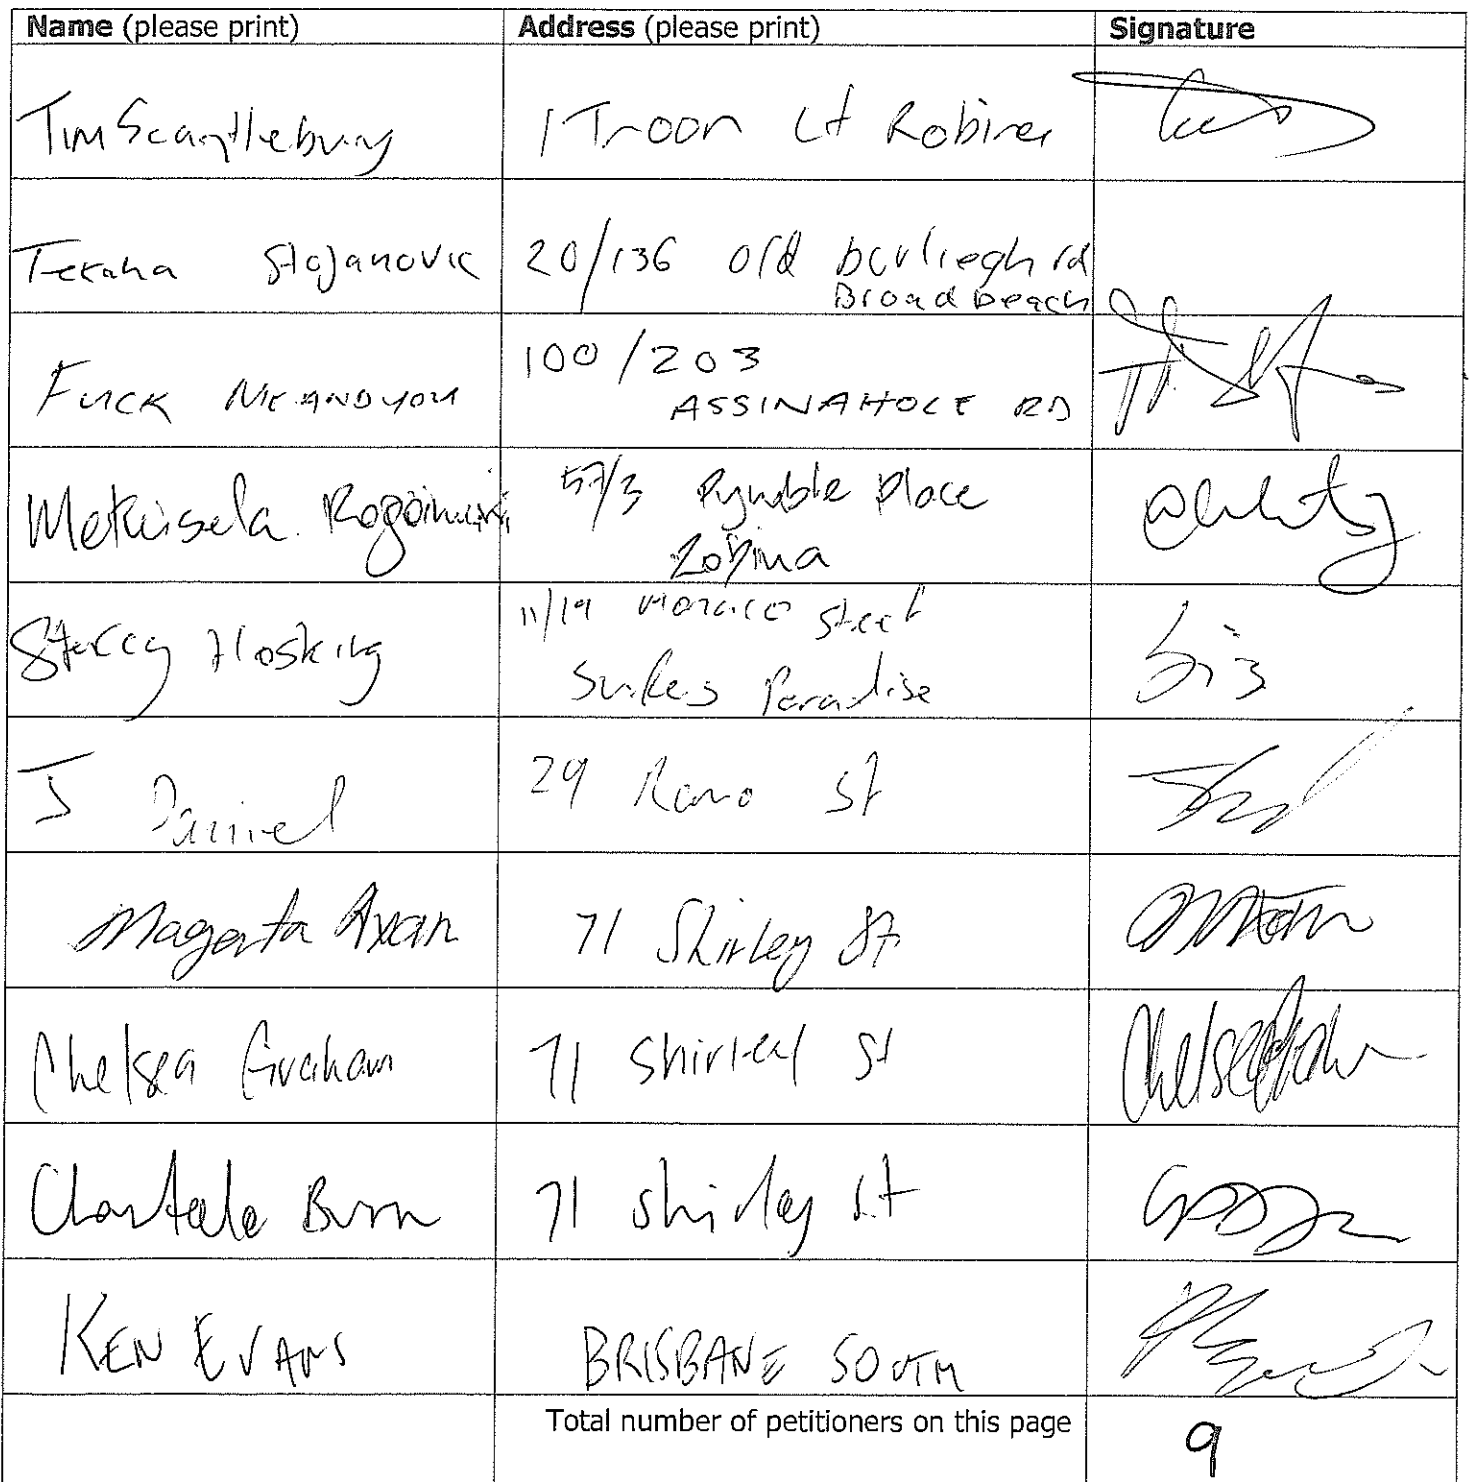 Name (please print) Address (please print) Signature
Tim Scantlebury 1 Troon Ct Robina
Tekaha Stojanovic 20/136 old burliegh rd
Broadbeach
FUCK MEANDYOU 100/203
ASSINAHOLE RD
57/3 Pymble Place
Robina
Stacey Hosking 11/19 Monaco Street
Surfers Paradise
J Daniel 29 Rano St
Magenta Axan 71 Shirley St
Chelsea Graham 71 Shirley St
Chantele Burn 71 Shirley St
KEN EVANS BRISBANE SOUTH
Total number of petitioners on this page 9